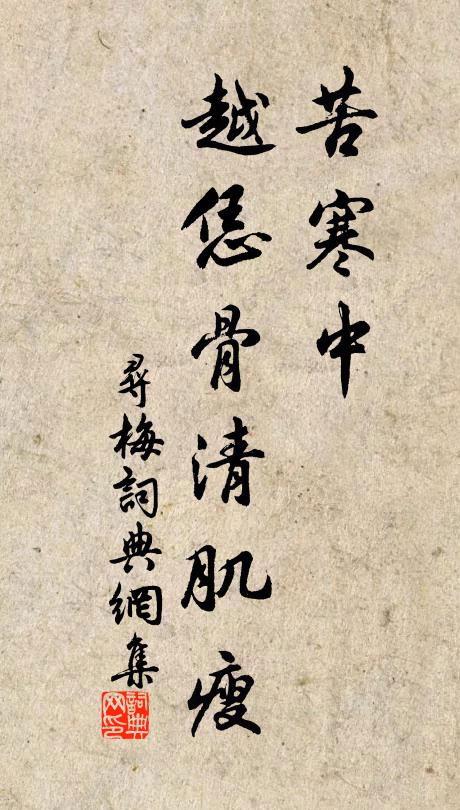 苦寒中
越恁骨清肌瘦
尋梅詞典網集
詞典
网印